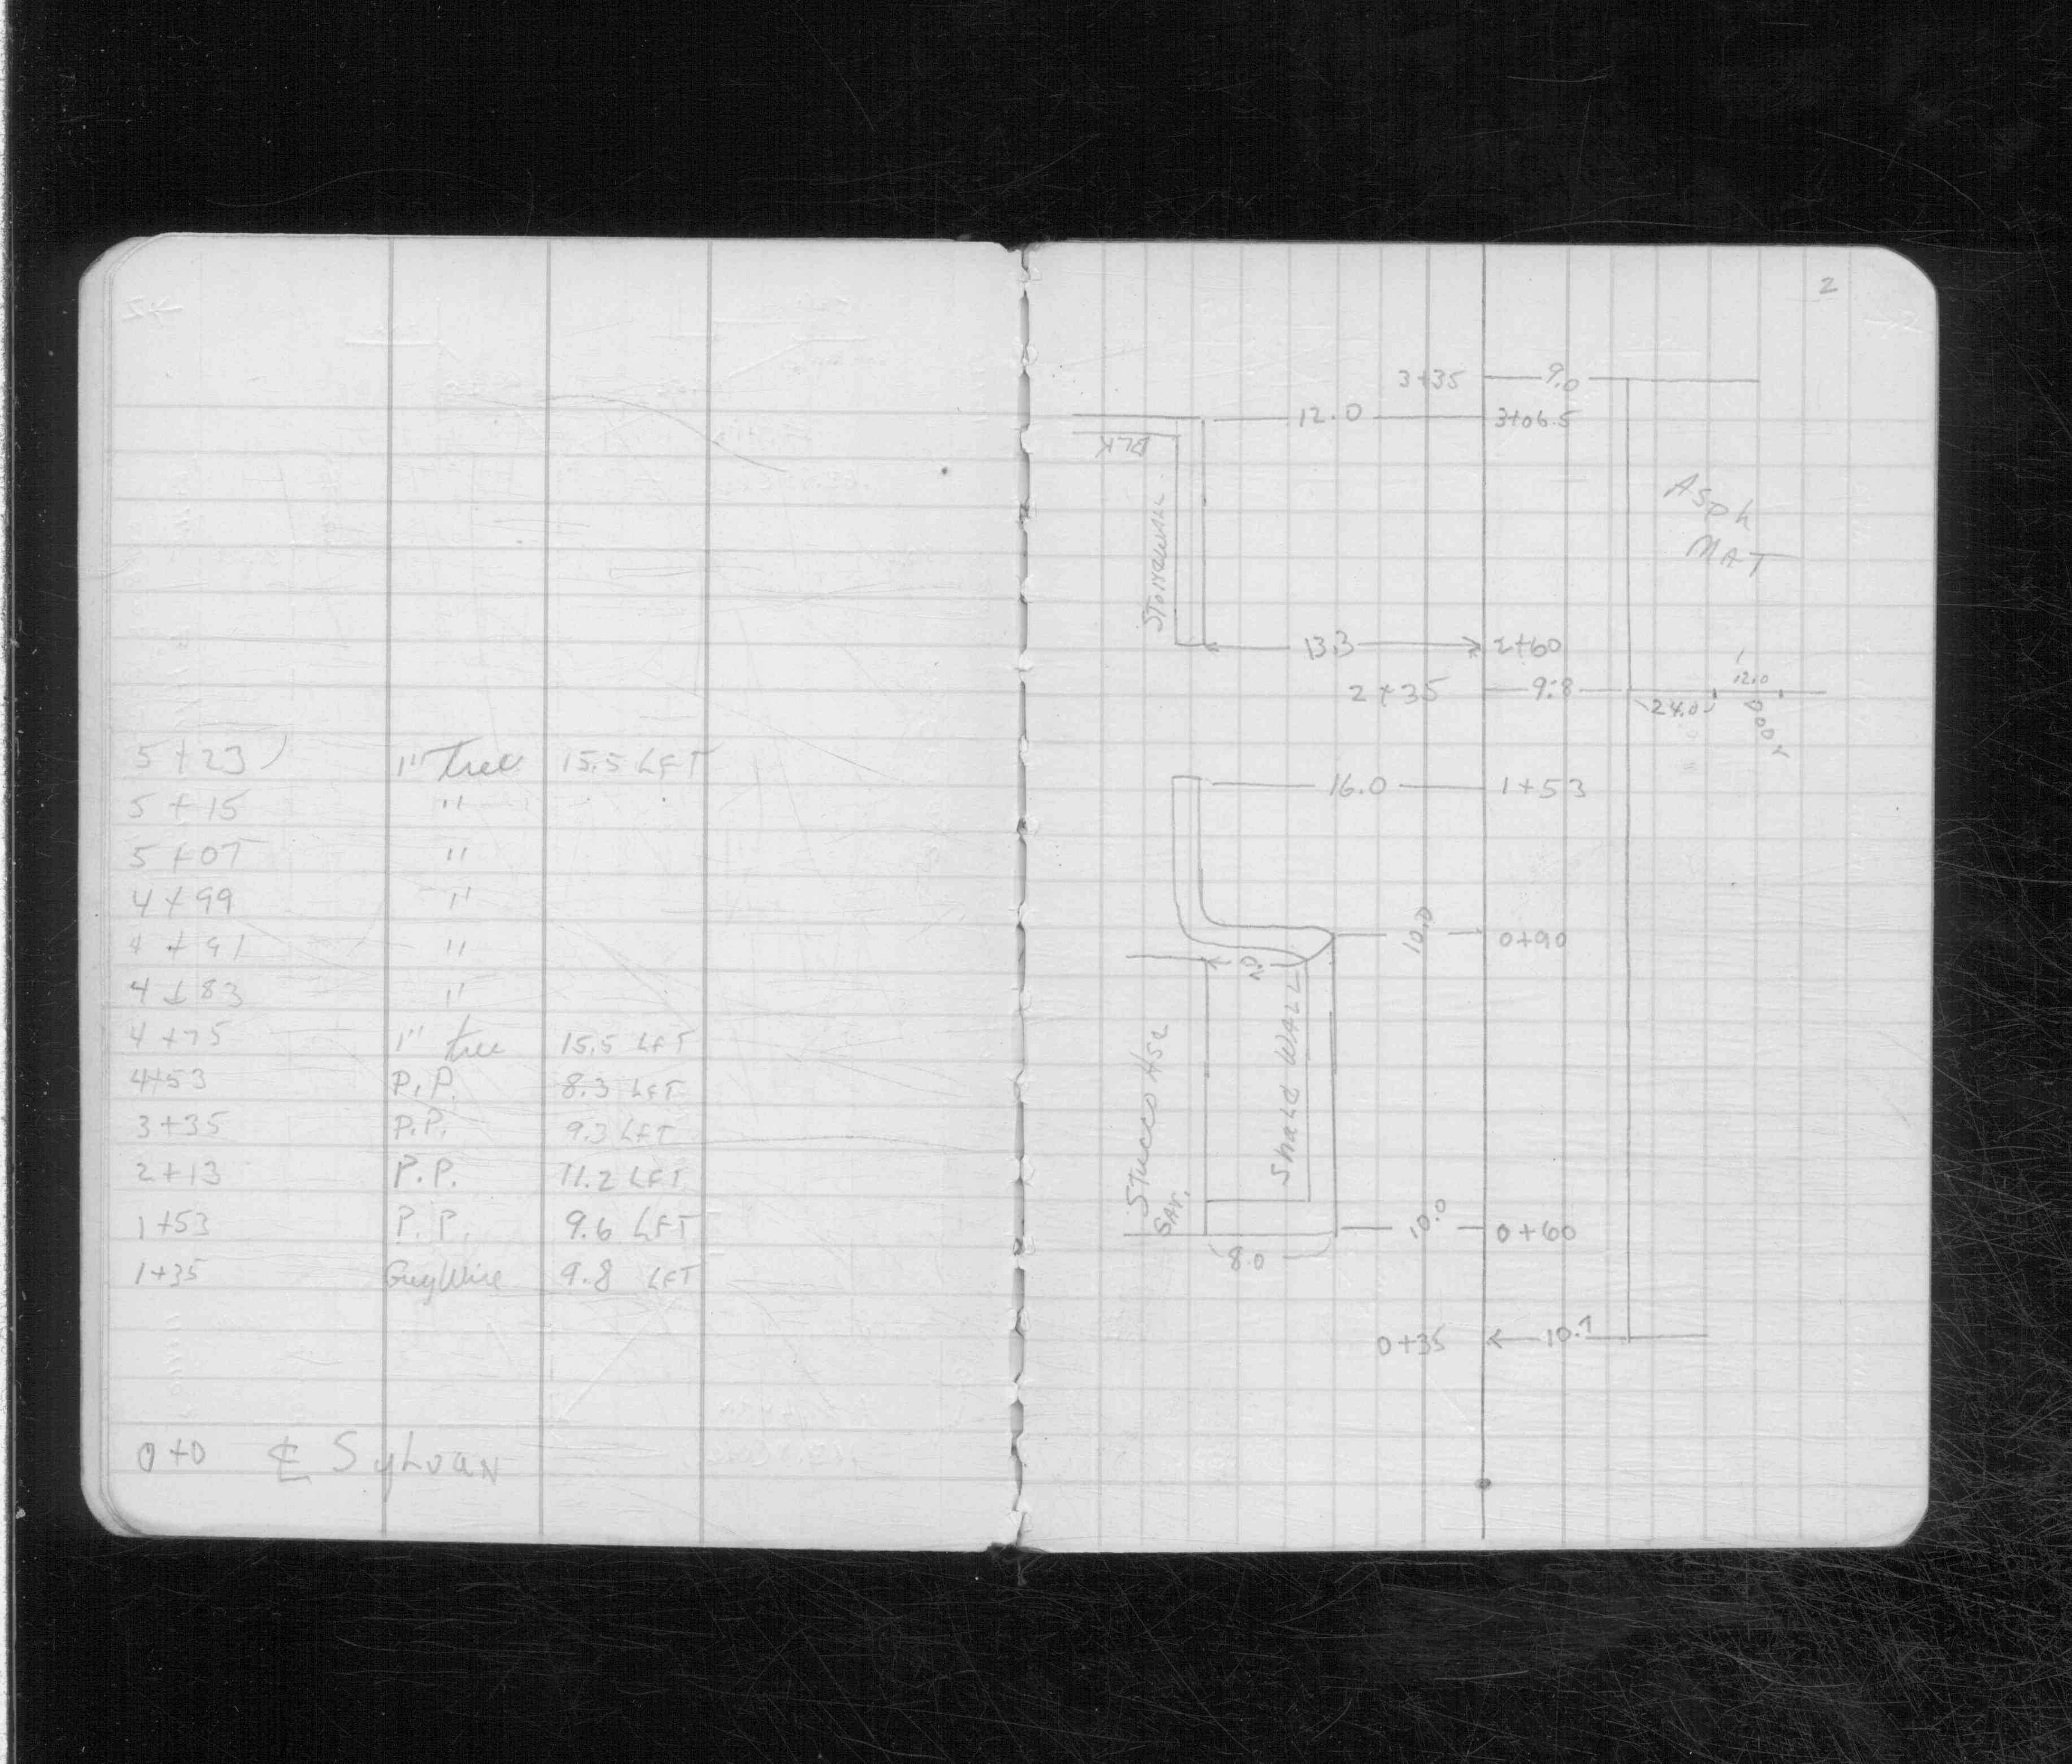 5+23 1" Tree 15.5 LFT
5+15 "
5+07 "
4+99 "
4+91 "
4+83 "
4+75 1" tree 15.5 LFT
4+53 P.P. 8.3 LFT
3+35 P.P. 9.3 LFT
2+13 P.P. 11.2 LFT
1+53 P.P. 9.6 LFT
1+35 Guy Wire 9.8 LFT
0+0 ℄ Sylvan
2
3+35 9.0
12.0 3+06.5
BLK
STONEWALL
Asph
MAT
13.3 2+60
2+35 9.8
24.0
12.0
DOOR
16.0 1+53
10.0 0+90
STUCCO HSE
Shale WALL
10.0 0+60
8.0
0+35 10.1